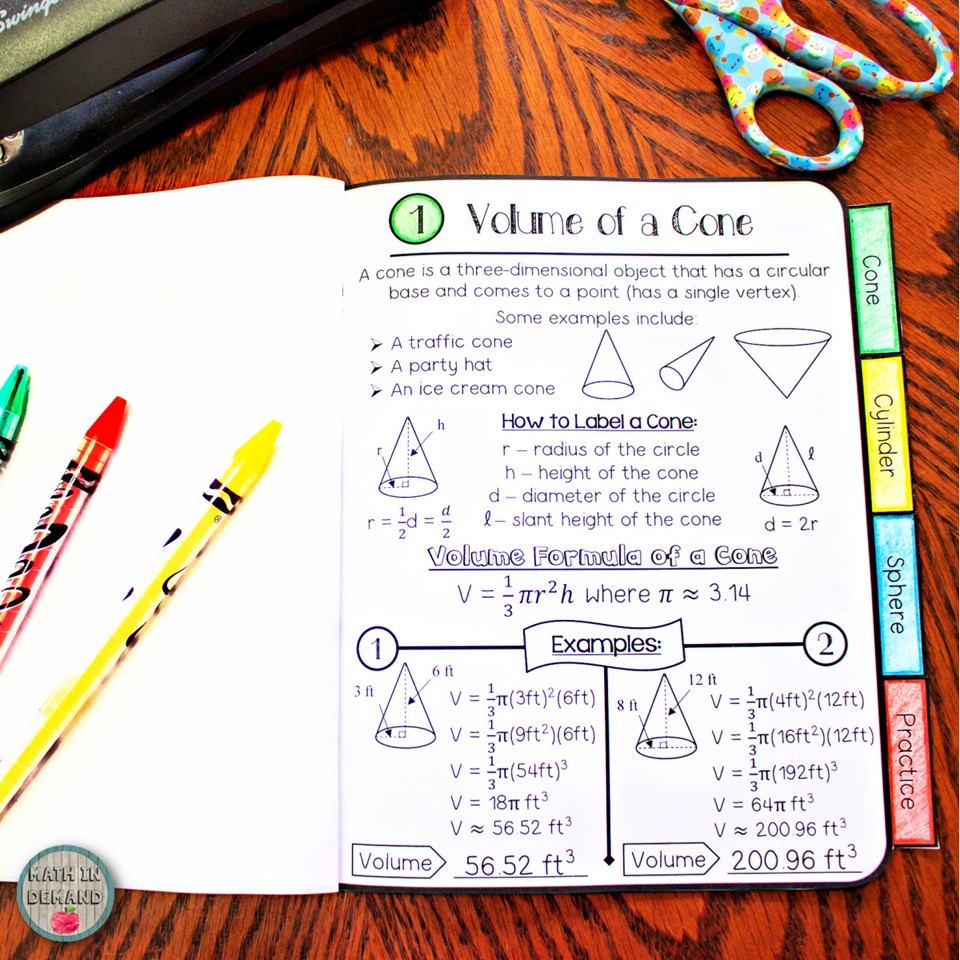 Swing
① Volume of a Cone
A cone is a three-dimensional object that has a circular
base and comes to a point (has a single vertex).
Some examples include:
➢ A traffic cone
➢ A party hat
➢ An ice cream cone
How to Label a Cone:
r – radius of the circle
h – height of the cone
d – diameter of the circle
ℓ – slant height of the cone
r
h
r = 1/2 d = d/2
d
ℓ
d = 2r
Volume Formula of a Cone
V = 1/3 πr²h where π ≈ 3.14
Examples:
①
3 ft
6 ft
V = 1/3 π(3ft)²(6ft)
V = 1/3 π(9ft²)(6ft)
V = 1/3 π(54ft)³
V = 18π ft³
V ≈ 56.52 ft³
Volume 56.52 ft³
②
8 ft
12 ft
V = 1/3 π(4ft)²(12ft)
V = 1/3 π(16ft²)(12ft)
V = 1/3 π(192ft)³
V = 64π ft³
V ≈ 200.96 ft³
Volume 200.96 ft³
Cone
Cylinder
Sphere
Practice
MATH IN
DEMAND